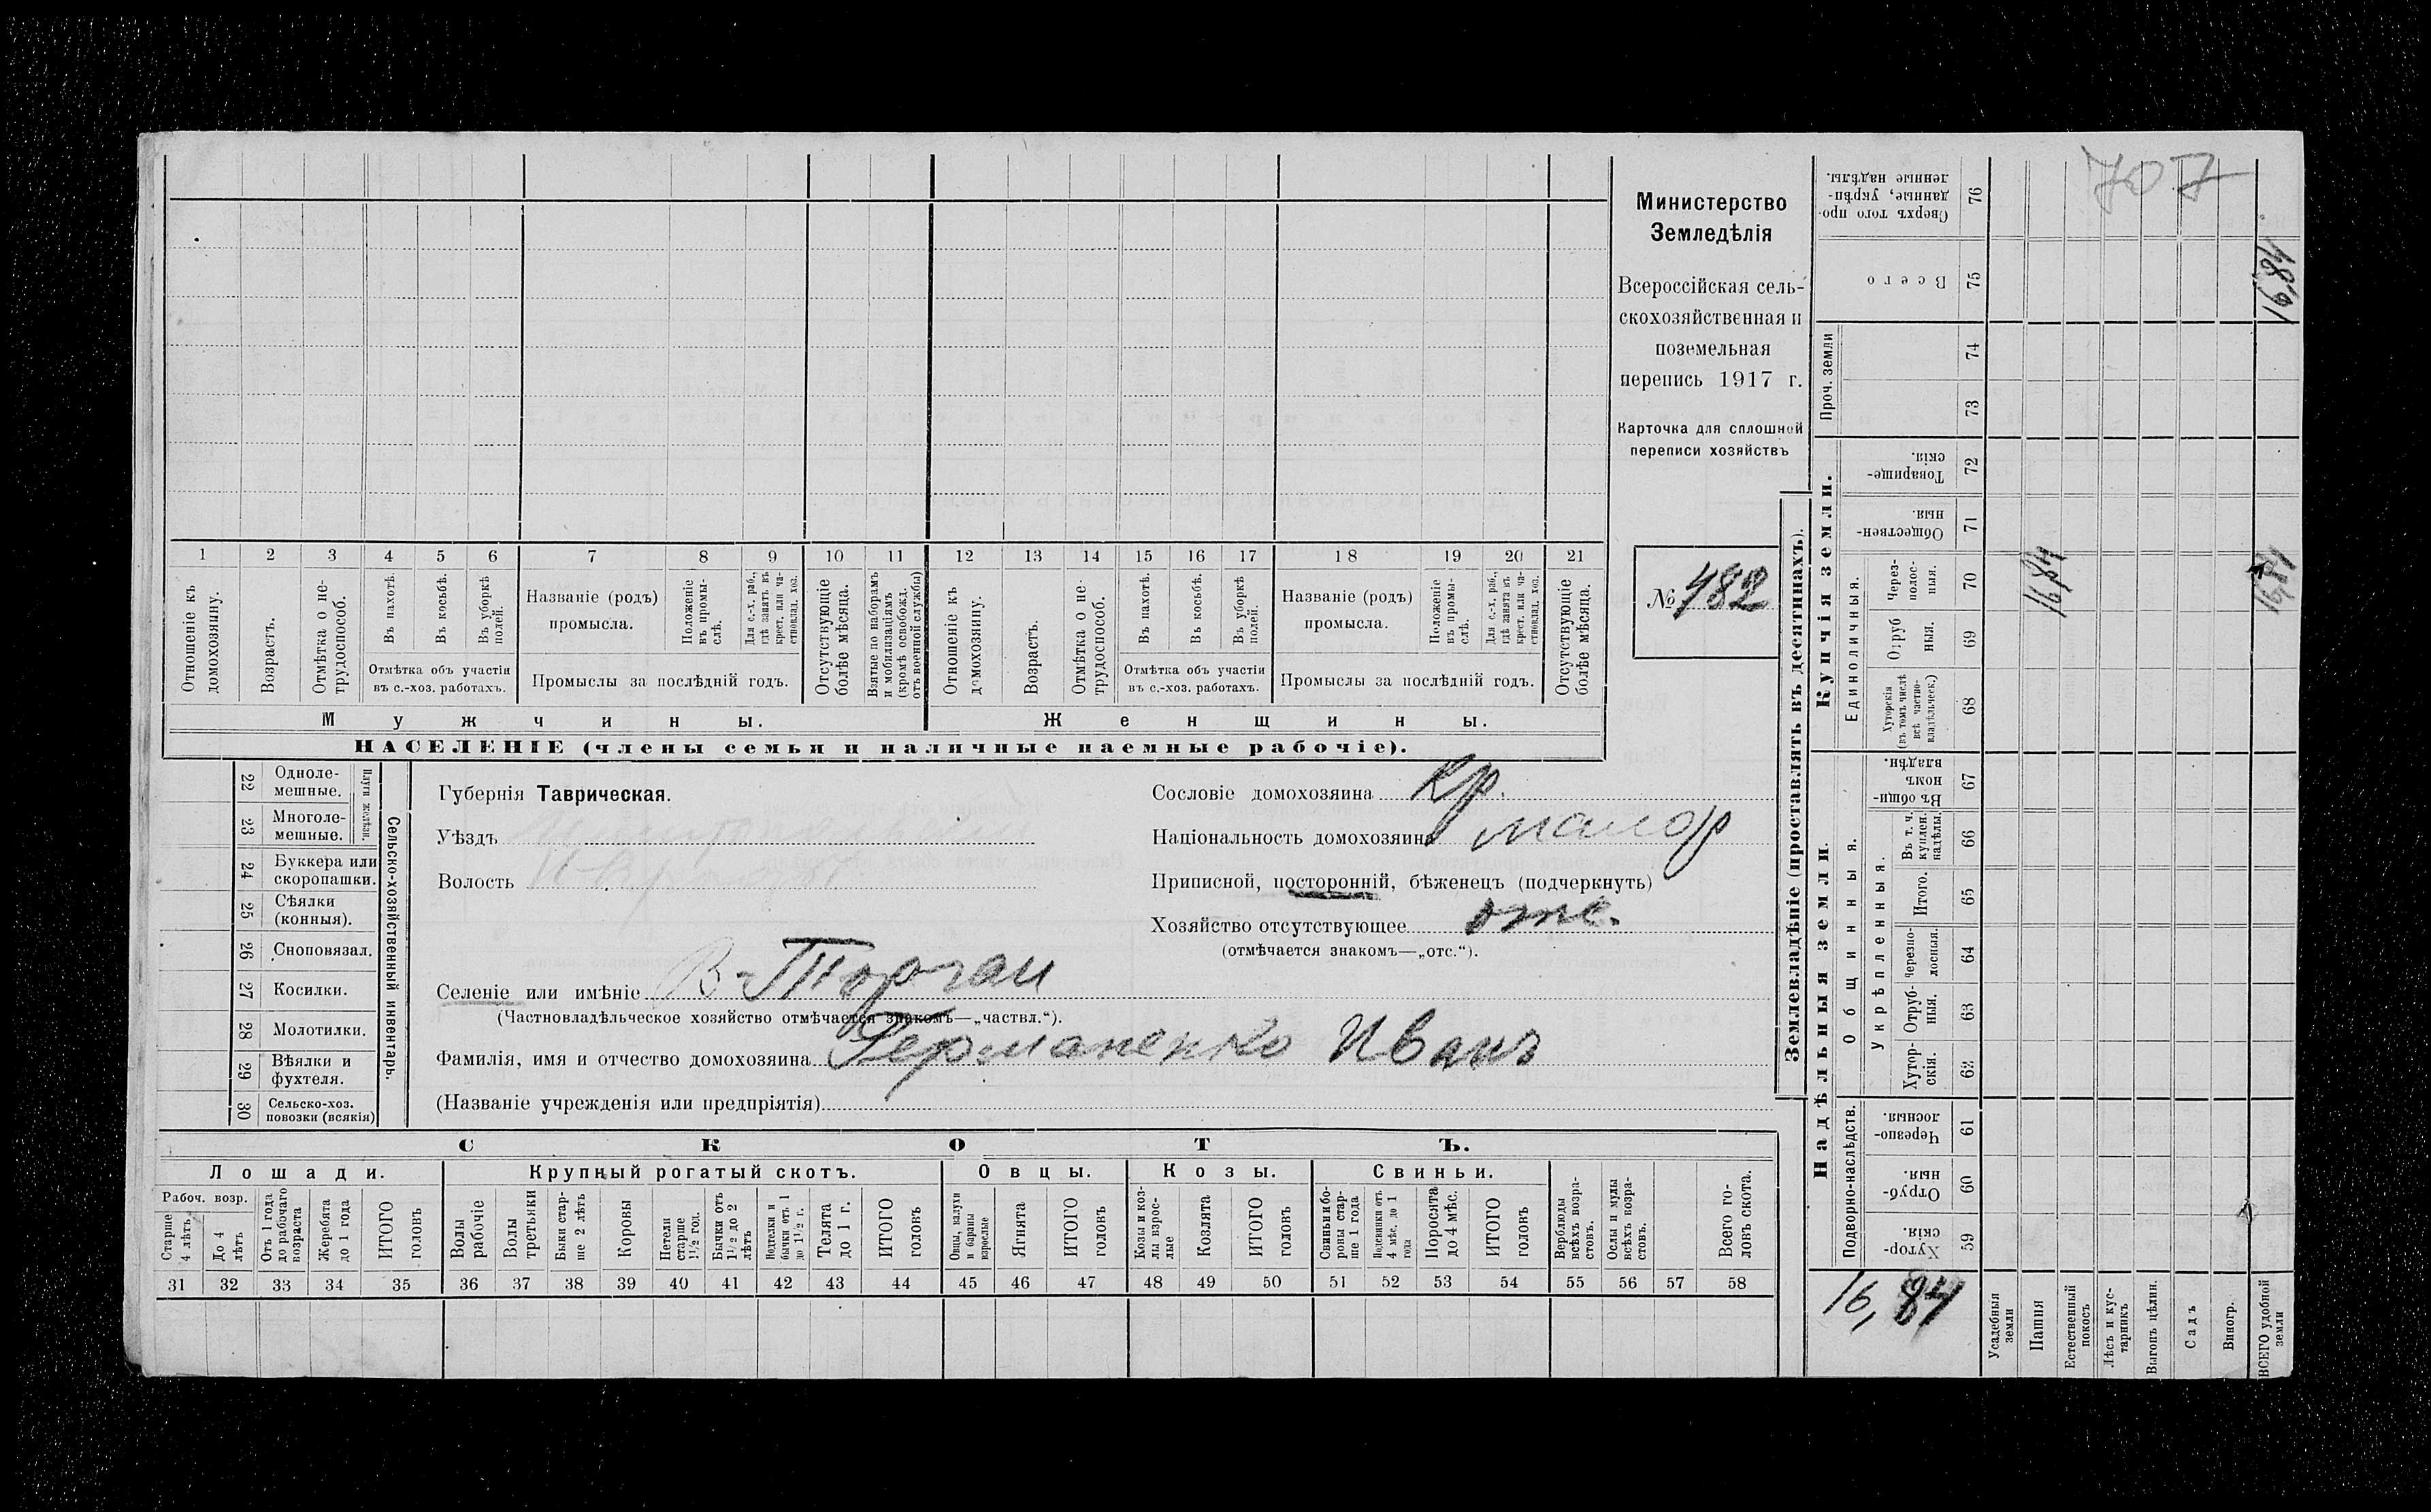 707
Министерство
Земледѣлія
Всероссійская сель-
скохозяйственная и
поземельная
перепись 1917 г.
Карточка для сплошной
переписи хозяйствъ
№ 482
1 2 3 4 5 6 7 8 9 10 11 12 13 14 15 16 17 18 19 20 21
Отношеніе къ домохозяину.
Возрастъ.
Отмѣтка о не-трудоспособ.
Въ пахотѣ.
Въ косьбѣ.
Въ уборкѣ полей.
Отмѣтка объ участіи
въ с.-хоз. работахъ.
Названіе (родъ)
промысла.
Положеніе въ промы-слѣ.
Для с.-х. раб., гдѣ занятъ въ крест. или ча-стновлад. хоз.
Промыслы за послѣдній годъ.
Отсутствующіе болѣе мѣсяца.
Взятые по наборамъ и мобилизаціямъ (кромѣ освобожд. отъ военной службы)
Отношеніе къ домохозяину.
Возрастъ.
Отмѣтка о не-трудоспособ.
Въ пахотѣ.
Въ косьбѣ.
Въ уборкѣ полей.
Отмѣтка объ участіи
въ с.-хоз. работахъ.
Названіе (родъ)
промысла.
Положеніе въ промы-слѣ.
Для с.-х. раб., гдѣ занята въ крест. или ча-стновлад. хоз.
Промыслы за послѣдній годъ.
Отсутствующіе болѣе мѣсяца.
Мужчины.
Женщины.
НАСЕЛЕНІЕ (члены семьи и наличные наемные рабочіе).
22 Одноле-мешные.
23 Многоле-мешные.
Плуги желѣзн.
24 Буккера или скоропашки.
25 Сѣялки (конныя).
26 Сноповязал.
27 Косилки.
28 Молотилки.
29 Вѣялки и фухтеля.
30 Сельско-хоз. повозки (всякія)
Сельско-хозяйственный инвентарь.
Губернія Таврическая.
Уѣздъ
Волость
Сословіе домохозяина Кр.
Національность домохозяина малор
Приписной, посторонній, бѣженецъ (подчеркнуть)
Хозяйство отсутствующее отс.
(отмѣчается знакомъ—„отс.“).
Селеніе или имѣніе В-Торгаи
(Частновладѣльческое хозяйство отмѣчается знакомъ—„частвл.“).
Фамилія, имя и отчество домохозяина Германенко Иванъ
(Названіе учрежденія или предпріятія)
СКОТЪ.
Лошади.
Крупный рогатый скотъ.
Овцы.
Козы.
Свиньи.
Рабоч. возр.
Старше 4 лѣтъ
До 4 лѣтъ
Отъ 1 года до рабочаго возраста
Жеребята до 1 года
ИТОГО головъ
Волы рабочіе
Волы третьяки
Быки стар-ше 2 лѣтъ
Коровы
Нетели старше 1½ год.
Бычки отъ 1½ до 2 лѣтъ
Подтелки и бычки отъ 1 до 1½ г.
Телята до 1 г.
ИТОГО головъ
Овцы, валухи и бараны взрослые
Ягнята
ИТОГО головъ
Козы и коз-лы взрос-лые
Козлята
ИТОГО головъ
Свиньи и бо-ровы стар-ше 1 года
Подсвинки отъ 4 мѣс. до 1 года
Поросята до 4 мѣс.
ИТОГО головъ
Верблюды всѣхъ возра-стовъ.
Ослы и мулы всѣхъ возра-стовъ.
Всего го-ловъ скота.
31 32 33 34 35 36 37 38 39 40 41 42 43 44 45 46 47 48 49 50 51 52 53 54 55 56 57 58
Землевладѣніе (проставлять въ десятинахъ).
Надѣльныя земли.
Купчія земли.
Проч. земли
Подворно-наслѣдств.
Общинныя.
Укрѣпленныя.
Единоличныя.
Хутор-скія. 59
Отруб-ныя. 60
Черезпо-лосныя. 61
Хутор-скія. 62
Отруб-ныя. 63
Черезпо-лосныя. 64
Итого. 65
Въ т. ч. куплен. надѣлы. 66
Въ общин-номъ владѣн. 67
Хуторскія (въ томъ числѣ всѣ частно-владѣльческ.) 68
Отруб ныя. 69
Через-полос-ныя. 70
Обществен-ныя. 71
Товарище-скія. 72
73
74
Всего 75
Сверхъ того про-данные, укрѣп-ленные надѣлы. 76
16,84
16,84
16,84
16,84
Усадебныя земли
Пашня
Естественный покосъ
Лѣсъ и кус-тарникъ
Выгонъ цѣлин.
Садъ
Виногр.
ВСЕГО удобной земли